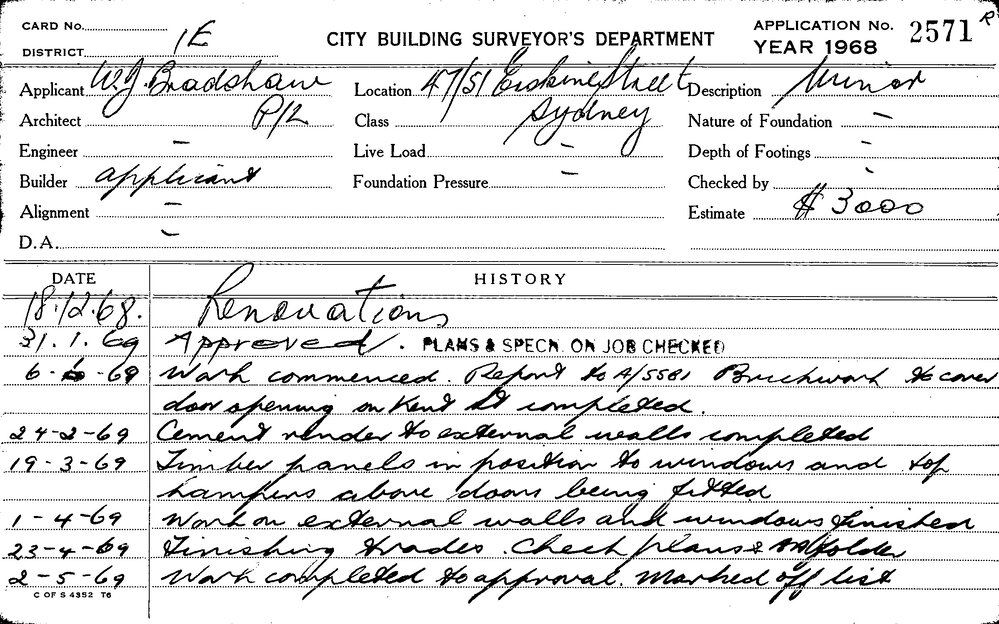 CARD No.
DISTRICT 1E
CITY BUILDING SURVEYOR'S DEPARTMENT
APPLICATION No. 2571 R
YEAR 1968
Applicant W.J. Bradshaw
Location 47/51 Erskine Street
Sydney
Description Minor
Architect P/L
Class
Nature of Foundation –
Engineer –
Live Load –
Depth of Footings -
Builder applicant
Foundation Pressure –
Checked by -
Alignment –
Estimate $3000
D.A. –
DATE HISTORY
18.12.68. Renovations
31.1.69 Approved. PLANS & SPECN. ON JOB CHECKED
6- -69 Work commenced. Report to A/5581 Brickwork to cover
door opening on Kent St completed.
24-2-69 Cement render to external walls completed
19-3-69 Timber panels in position to windows and top
hampers above doors being fitted
1-4-69 Work on external walls and windows finished
23-4-69 Finishing trades. Check plans & folder
2-5-69 Work completed to approval. Marked off list
C OF S 4352 T6